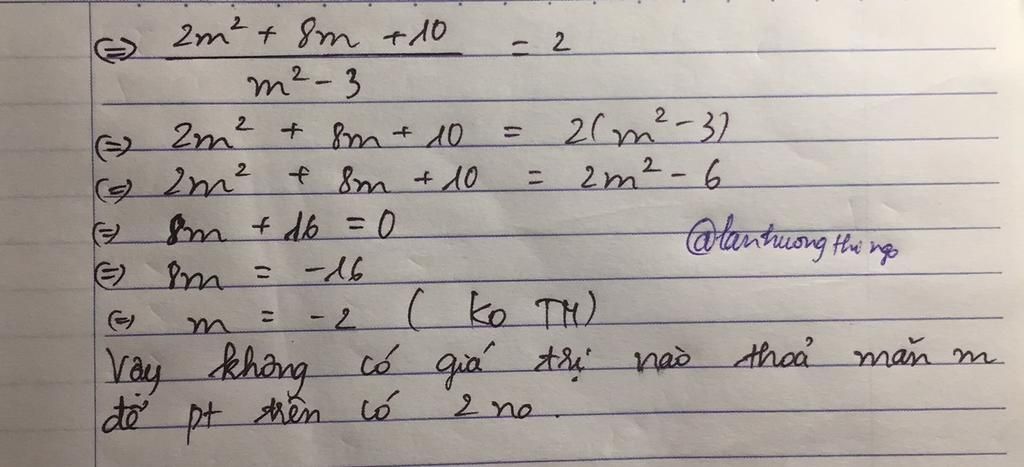 (=) (2m² + 8m + 10)/(m² - 3) = 2
(=) 2m² + 8m + 10 = 2(m² - 3)
(=) 2m² + 8m + 10 = 2m² - 6
(=) 8m + 16 = 0
@lanhuongthingo
(=) 8m = -16
(=) m = -2 ( Ko TM)
Vậy không có giá trị nào thoả mãn m
để pt trên có 2 no.